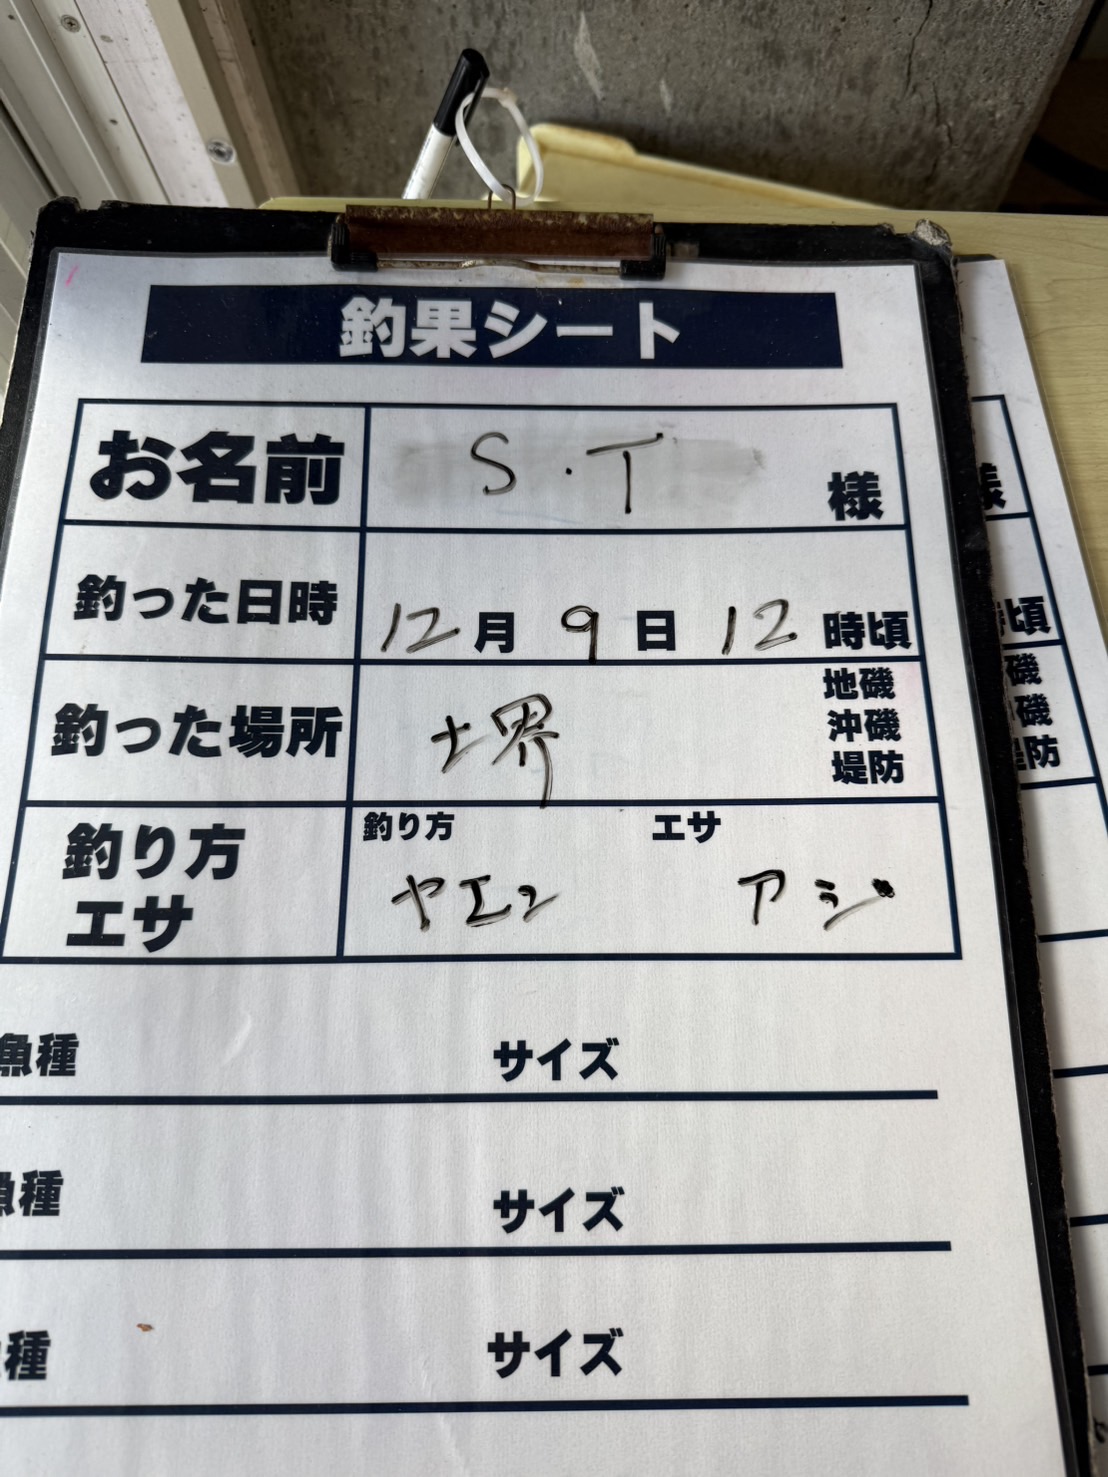 釣果シート
お名前 S・T 様
釣った日時 12月9日12時頃
釣った場所 堺 地磯
沖磯
堤防
釣り方
エサ
釣り方 エサ
ヤエン アジ
魚種 サイズ
魚種 サイズ
種 サイズ
様
頃
磯
磯
堤防